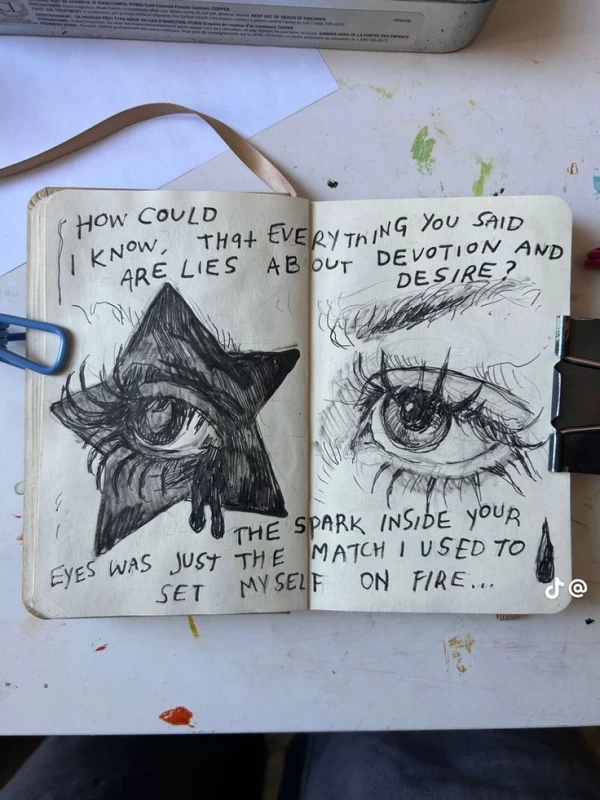 KEEP OUT OF REACH OF CHILDREN
HOW COULD
I KNOW, THAT EVERYTHING YOU SAID
ARE LIES ABOUT DEVOTION AND
DESIRE?
THE SPARK INSIDE YOUR
EYES WAS JUST THE MATCH I USED TO
SET MYSELF ON FIRE...
@